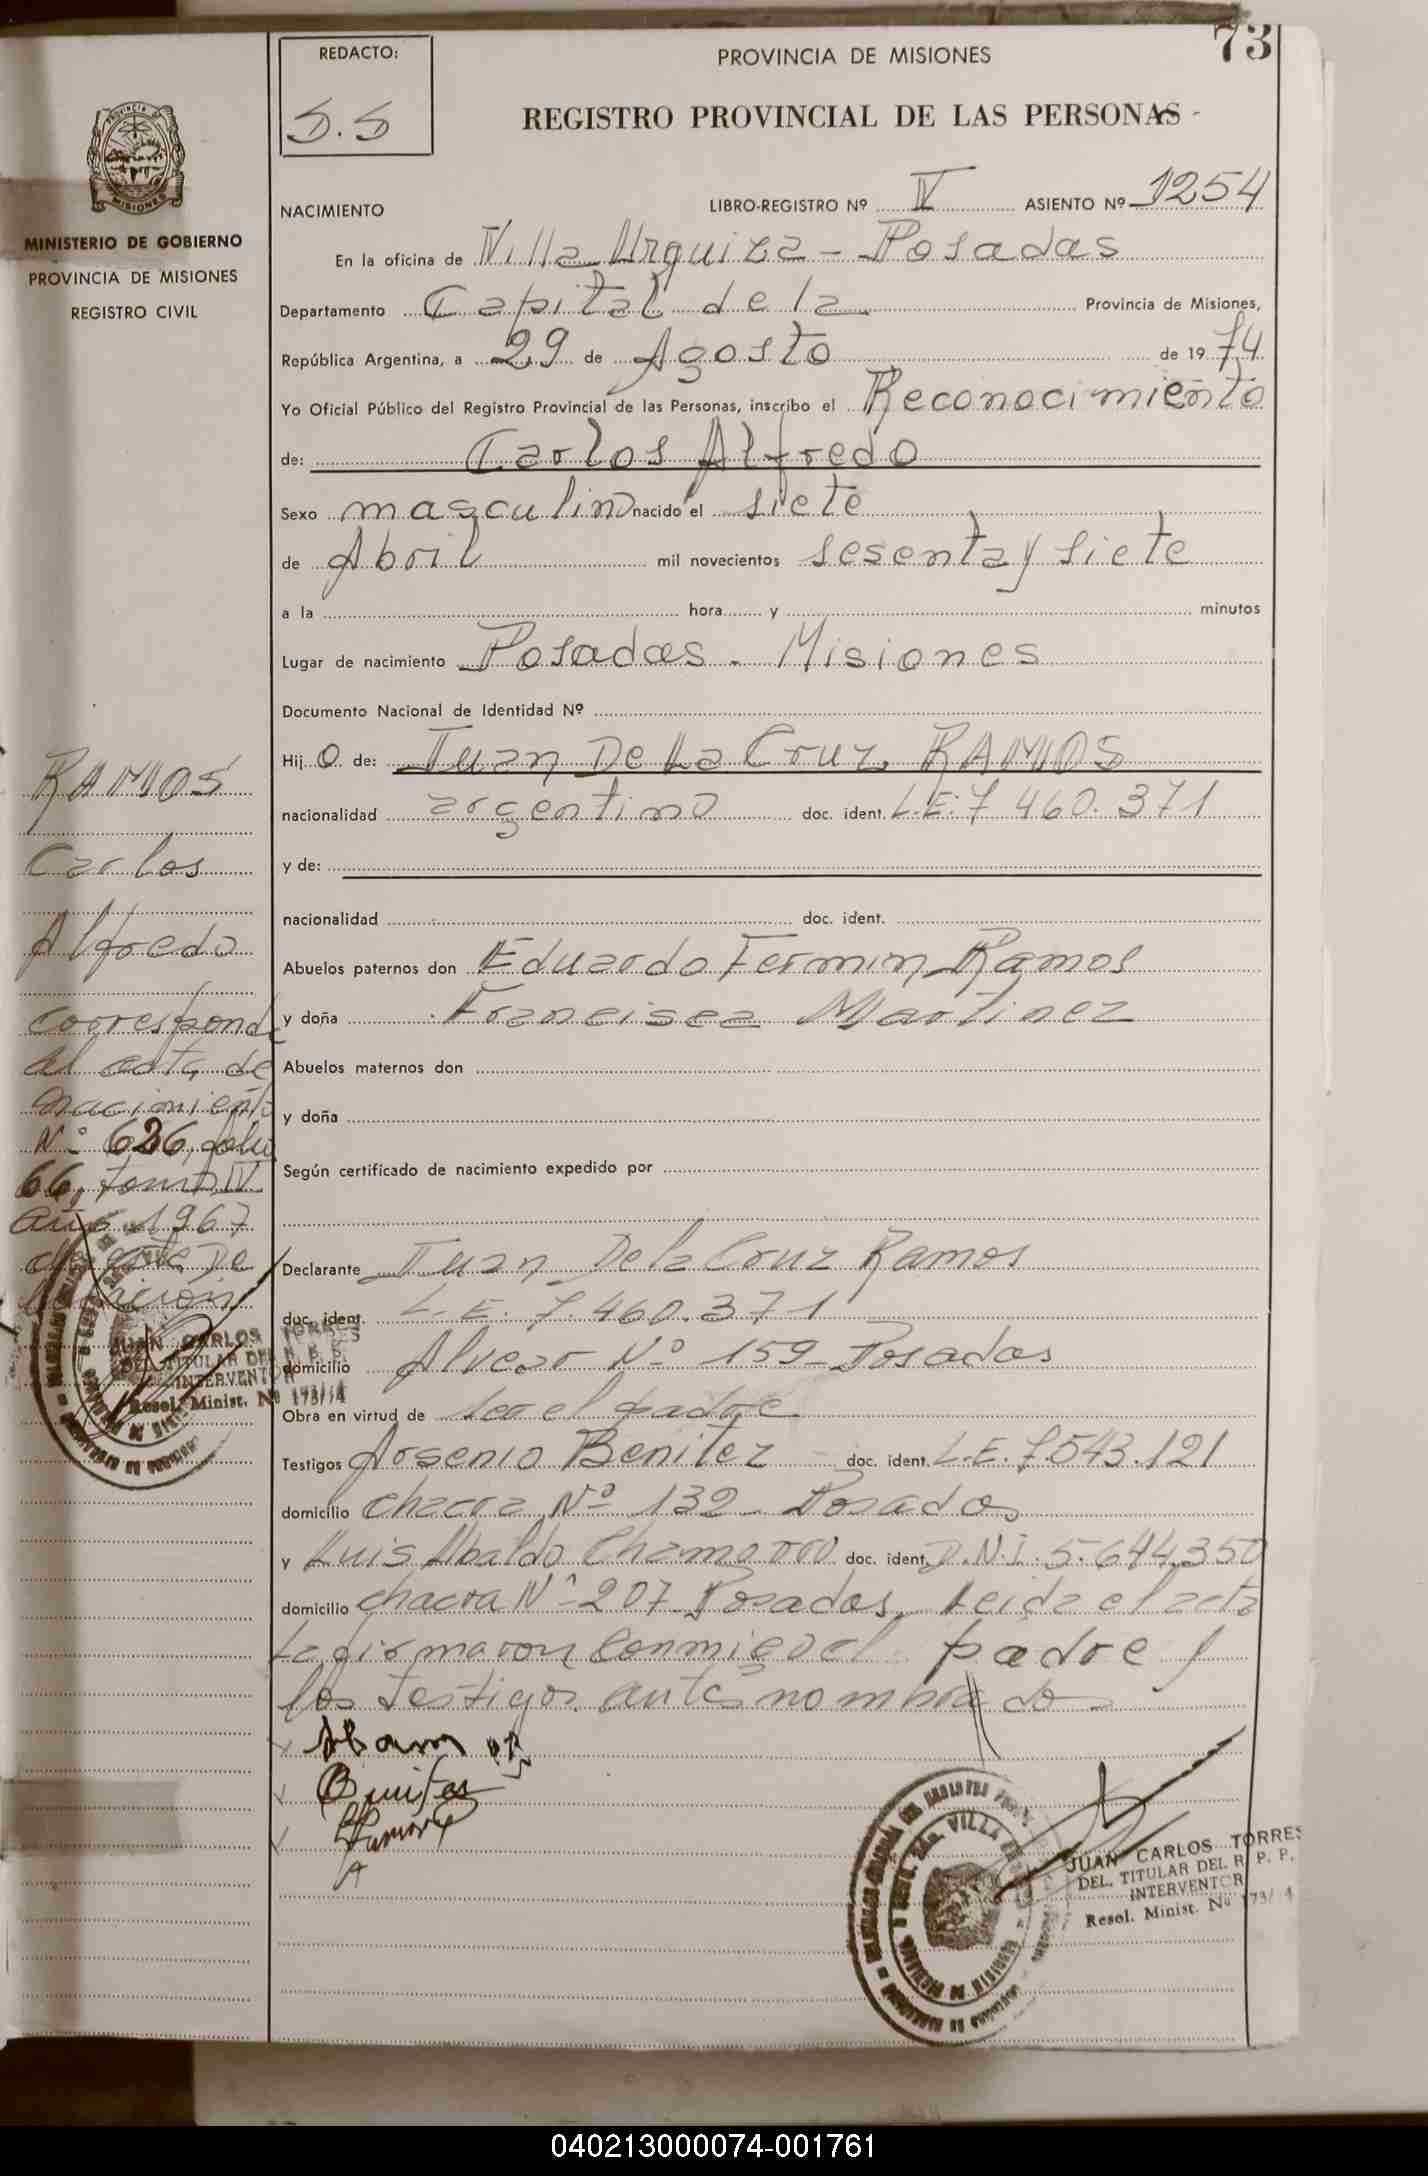 73
REDACTO:
S.S
PROVINCIA DE MISIONES
REGISTRO PROVINCIAL DE LAS PERSONAS
MISIONES
MINISTERIO DE GOBIERNO
PROVINCIA DE MISIONES
REGISTRO CIVIL
NACIMIENTO LIBRO-REGISTRO Nº IV ASIENTO Nº 1254
En la oficina de Villa Urquiza - Posadas
Departamento Capital de la Provincia de Misiones,
República Argentina, a 29 de Agosto de 1974
Yo Oficial Público del Registro Provincial de las Personas, inscribo el Reconocimiento
de: Carlos Alfredo
Sexo masculino nacido el siete
de Abril mil novecientos sesenta y siete
a la hora y minutos
Lugar de nacimiento Posadas - Misiones
Documento Nacional de Identidad Nº
Hijo de: Juan De La Cruz RAMOS
nacionalidad argentino doc. ident. L.E. 7.460.371
y de:
nacionalidad doc. ident.
Abuelos paternos don Eduardo Fermin Ramos
y doña Francisca Martinez
Abuelos maternos don
y doña
Según certificado de nacimiento expedido por
Declarante Juan De la Cruz Ramos
doc. ident. L.E. 7.460.371
domicilio Alvear Nº 159 - Posadas
Obra en virtud de ser el padre
Testigos Arsenio Benitez doc. ident. L.E. 7.543.121
domicilio chacra Nº 132 - Posadas
y Luis Ubaldo Chamorro doc. ident. D.N.I. 5.644.350
domicilio chacra Nº 207 Posadas, Leida el acta
la firmaron conmigo el padre y
los testigos antes nombrados
RAMOS
Carlos
Alfredo
corresponde
al acta de
nacimiento
Nº 636, folio
66, tomo IV
año 1967
de esta De
JUAN CARLOS TORRES
DEL. TITULAR DEL R. P. P.
INTERVENTOR
Resol. Minist. Nº 173/74
Benitez
JUAN CARLOS TORRES
DEL. TITULAR DEL R. P. P.
INTERVENTOR
Resol. Minist. Nº 173/ 4
040213000074-001761